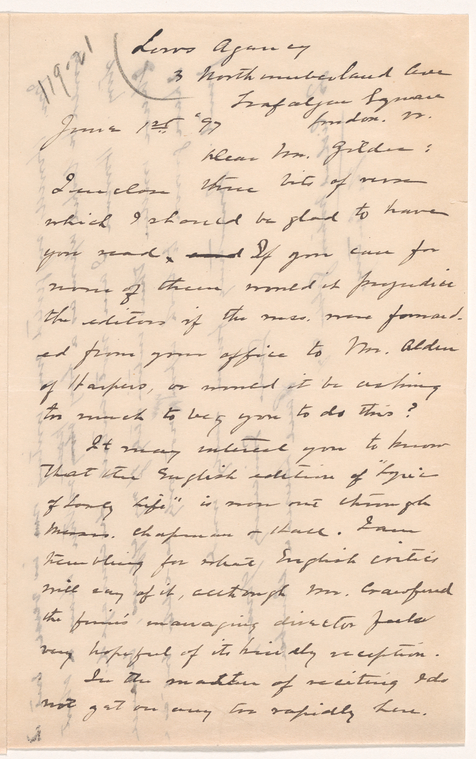 119-21
Lows Agency
3 Northumberland Ave
Trafalgar Square
London. W.
June 1st '97
Dear Mr. Gilder:
I enclose three bits of verse
which I should be glad to have
you read, and If you care for
none of them would it prejudice
the editors if the mss. were forward-
ed from your office to Mr. Alden
of Harpers, or would it be asking
too much to beg you to do this?
It may interest you to know
that the English edition of "Lyrics
of Lowly Life", is now out through
Messrs. Chapman & Hall. I am
trembling for what English critics
will say of it, although Mr. Crawfurd
the firm's managing director feels
very hopeful of its kindly reception.
In the matter of reciting I do
not get on any too rapidly here.